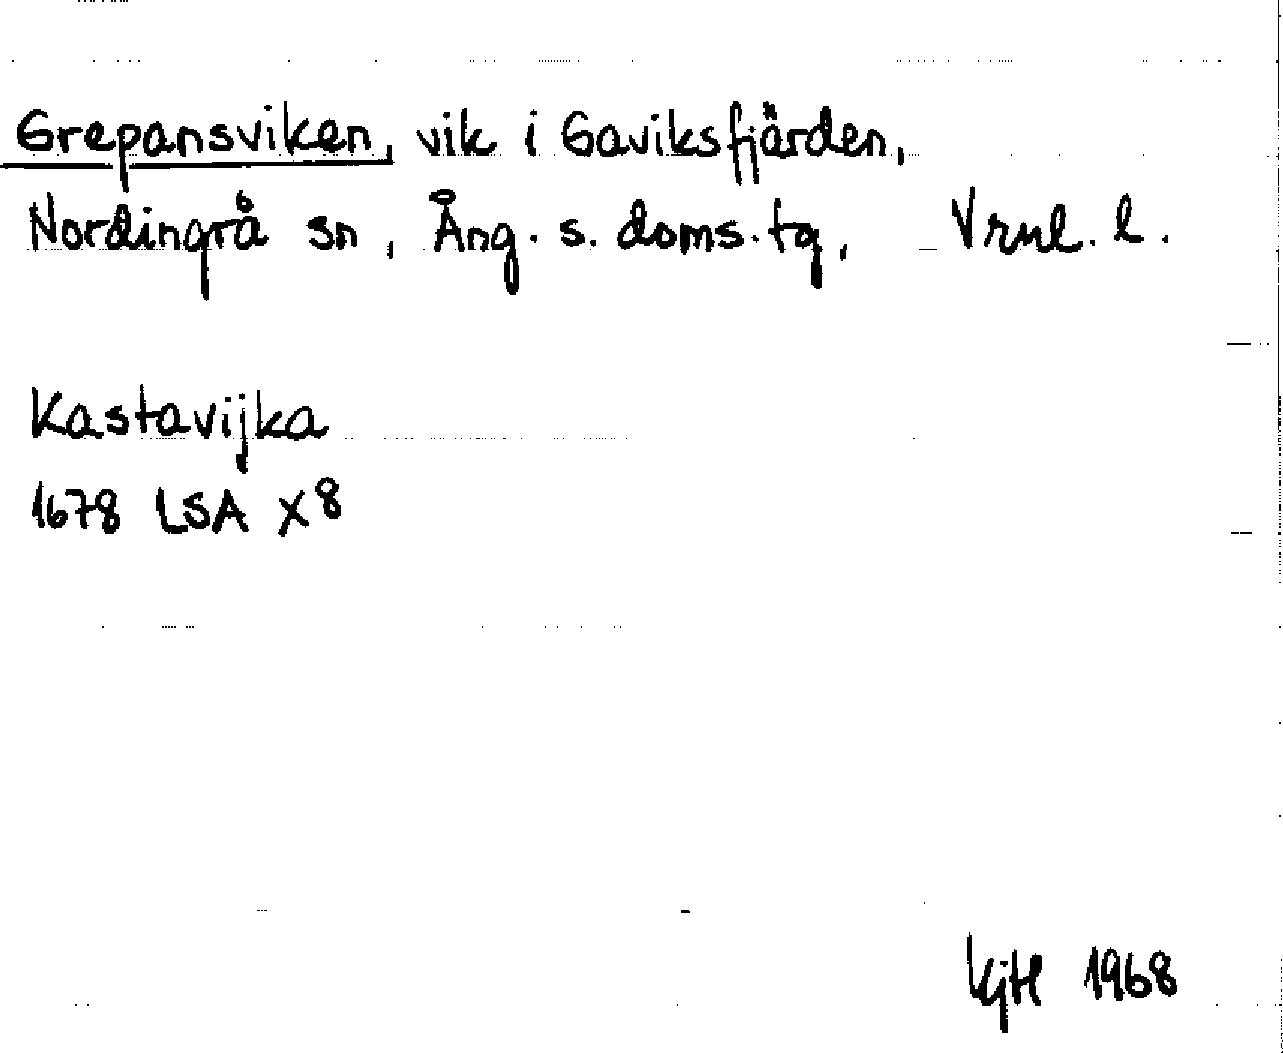 Grepansviken, vik i Gaviksfjärden,
Nordingrå sn, Ång. s. doms. tg, Vrnl. l.
Kastavijka
1678 LSA X8
KjH 1968